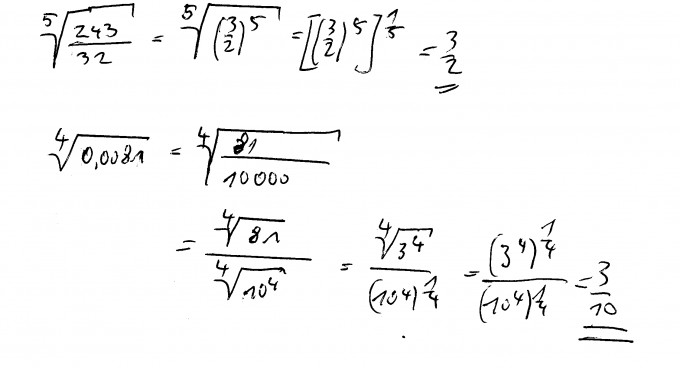 ⁵√(243/32) = ⁵√((3/2)⁵) = [(3/2)⁵]^(1/5) = 3/2
⁴√(0,0081) = ⁴√(81/10000)
= ⁴√81 / ⁴√(10⁴) = ⁴√(3⁴) / (10⁴)^(1/4) = (3⁴)^(1/4) / (10⁴)^(1/4) = 3/10